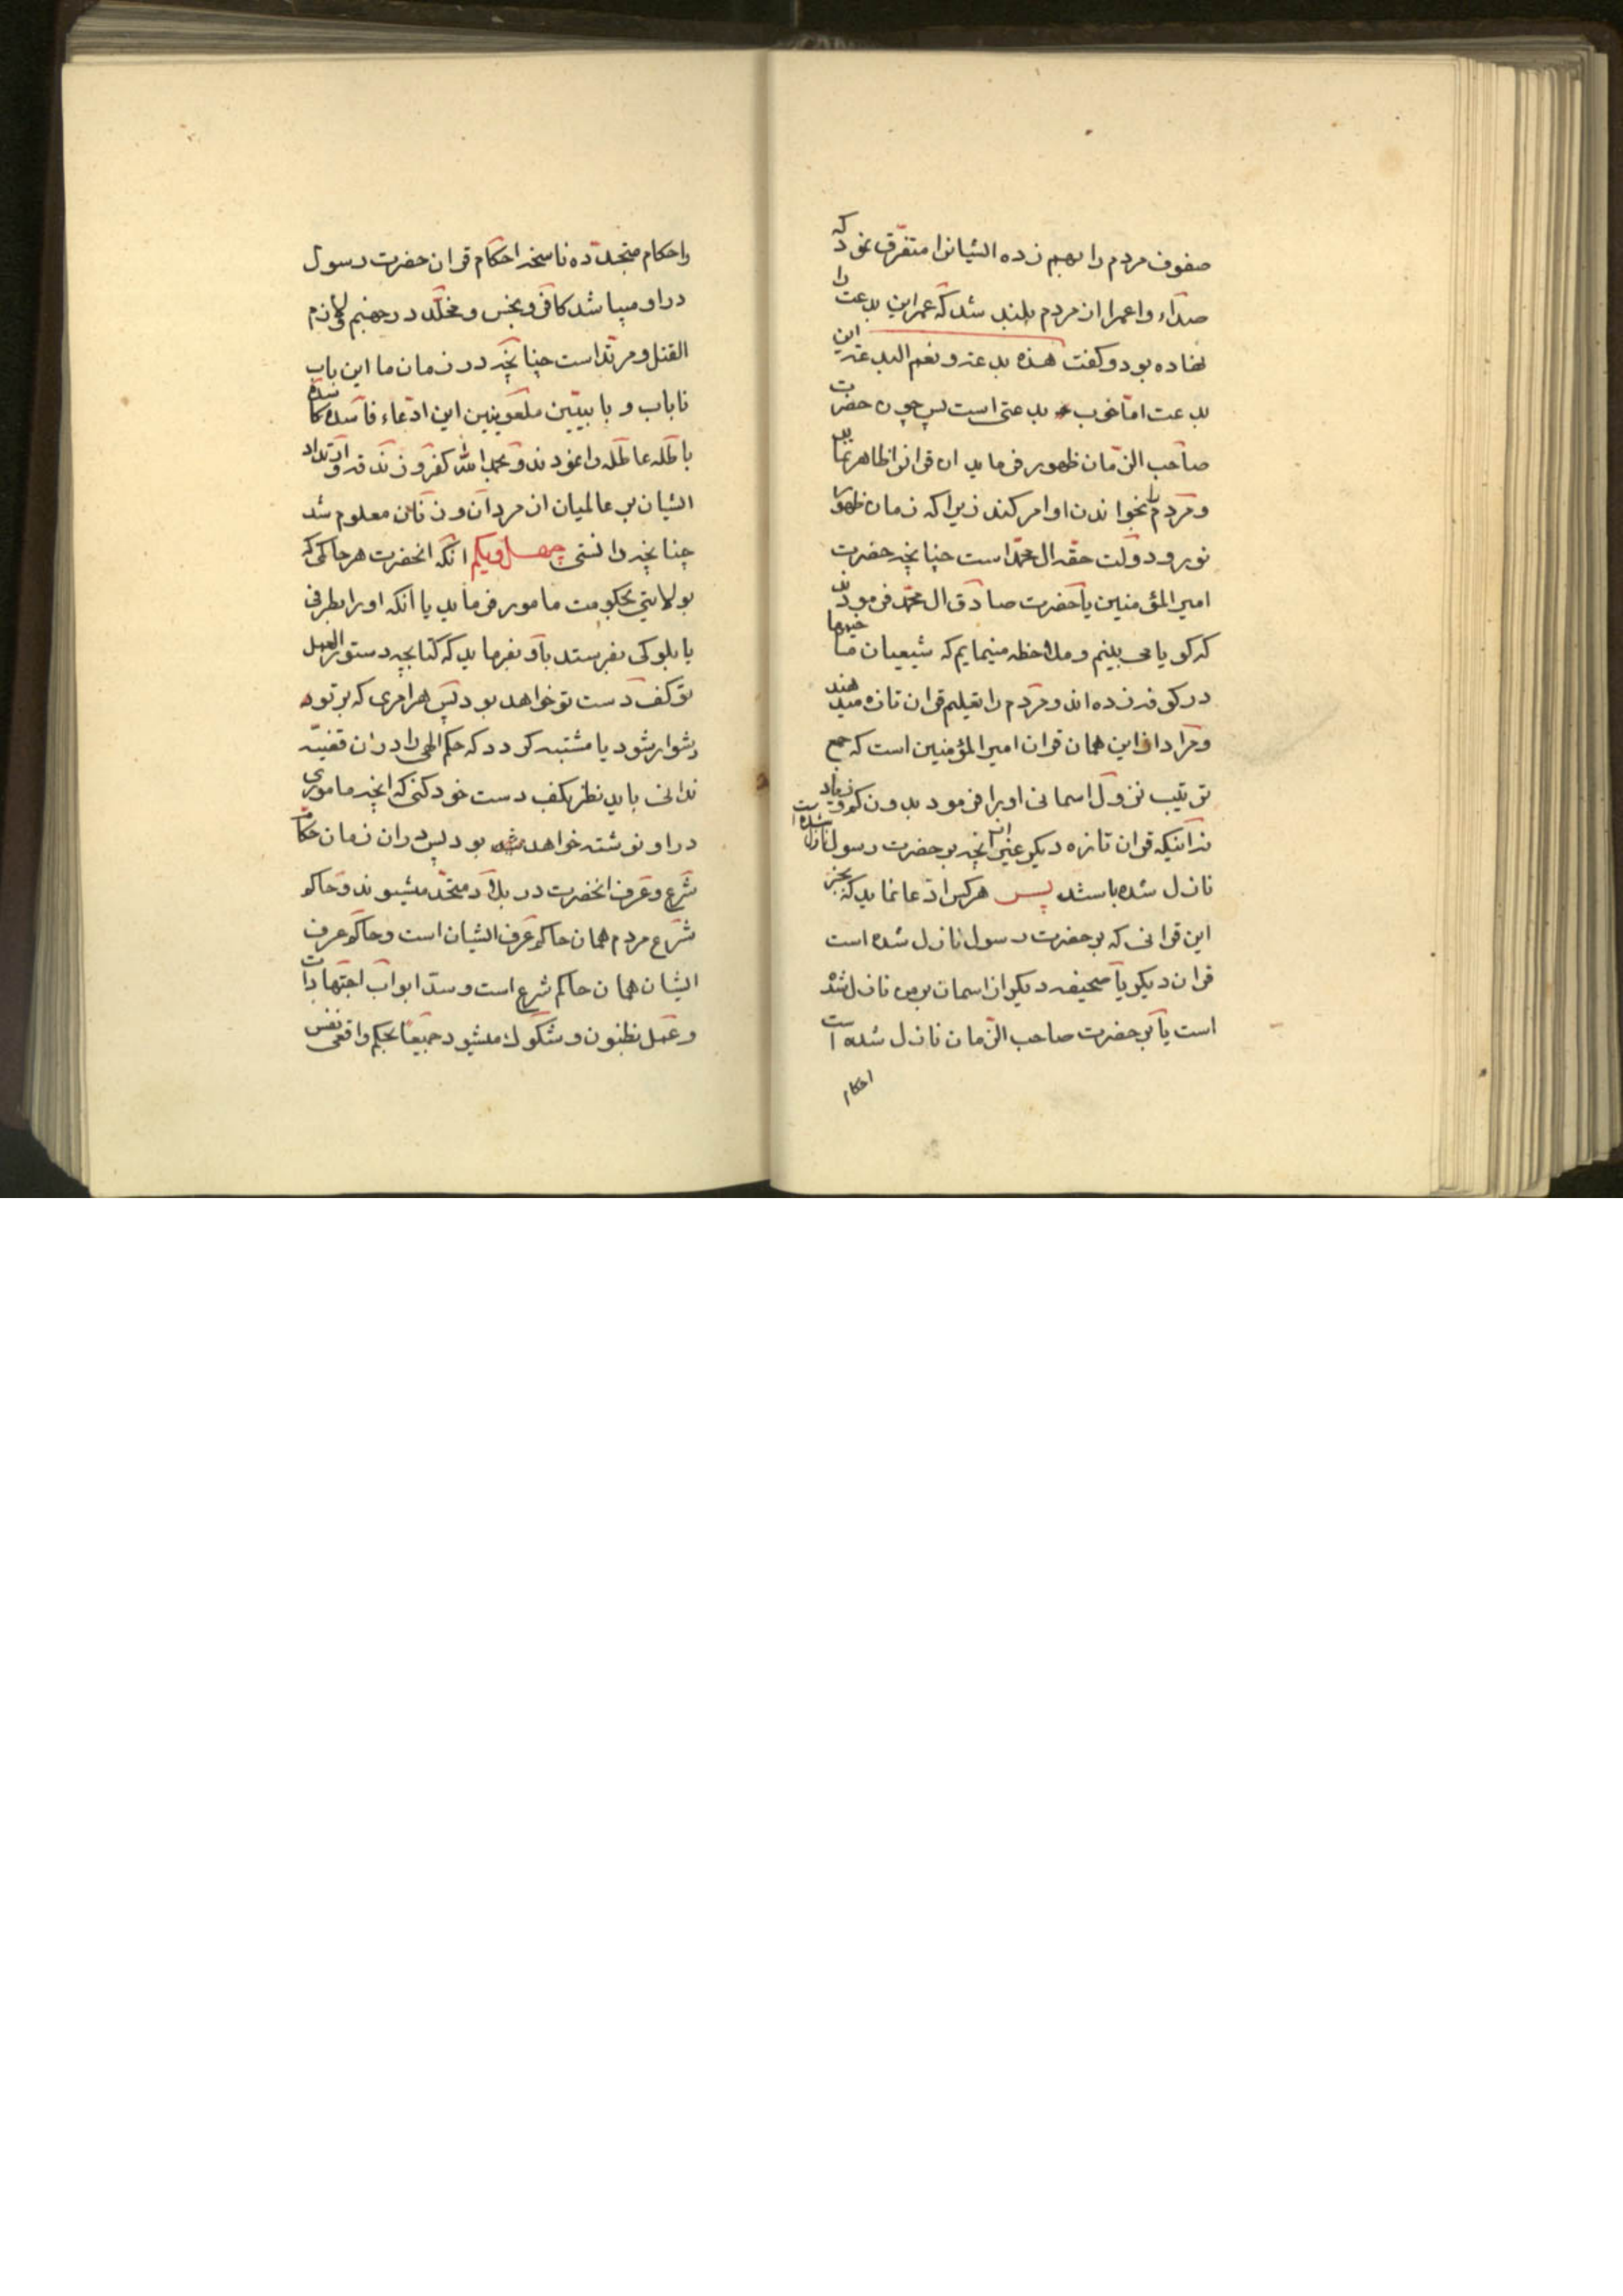 صفوف مردم را بهم زده ایشانرا متفرق نمود که
صداء واعمرا از مردم بلند شد که عمر این بدعت را
نهاده بود و گفت هذه بدعة و نعم البدعة این
بدعت اما خوب بدعتی است پس چون حضرت
صاحب الزمان ظهور فرماید ان قرانرا ظاهر نماید
و مردم را بخواندن او امر کند زیرا که زمان ظهور
نور و دولت حقه ال محمد است چنانچه حضرت
امیر المؤمنین یا حضرت صادق ال محمد فرمودند
که کویا می بینم و ملاحظه مینمایم که شیعیان ما خیمها
در کوفه زده اند و مردم را تعلیم قران تازه میدهند
و مراد از این همان قران امیر المؤمنین است که جمع
ترتیب نزول اسمانی اورا فرمود بدون کم و زیاد
نه اینکه قران تازه دیکر غیر از انچه بر حضرت رسول نازل شده است
نازل شده باشد پس هر کس ادعا نماید که بجز
این قرانی که بر حضرت رسول نازل شده است
قران دیکر یا صحیفه دیکر از اسمان بر من نازل شده
است یا بر حضرت صاحب الزمان نازل شده است
احکام
واحکام متجدده ناسخه احکام قران حضرت رسول
در او میباشد کافر و نجس و مخلد در جهنم و لازم
القتل و مرتد است چنانچه در زمان ما این باب
ناباب و بابیین ملعونین این ادعاء فاسده کاسده
باطله عاطله را نمودند و بحمد الله کفر و زندقه و ارتداد
ایشان بر عالمیان از مردان و زنان معلوم شد
چنانچه دانستی چهل و یکم انکه انحضرت هر حاکمی که
بولایتی بحکومت مامور فرماید یا انکه اورا بطرفی
یا بلوکی بفرستد باو بفرماید که کتابچه دستور العمل
تو کف دست تو خواهد بود پس هر امری که بر تو
دشوار شود یا مشتبه کردد که حکم الهی را در ان قضیه
ندانی باید نظر بکف دست خود کنی که انچه ماموری
در او نوشته خواهد بود پس در ان زمان حکام
شرع و عرف انحضرت در بلاد متحد میشوند و حاکم
شرع مردم همان حاکم عرف ایشان است و حاکم عرف
ایشان همان حاکم شرع است و سد ابواب اجتهادات
و عمل بظنون و شکوک میشود جمیعا بحکم واقعی نفس